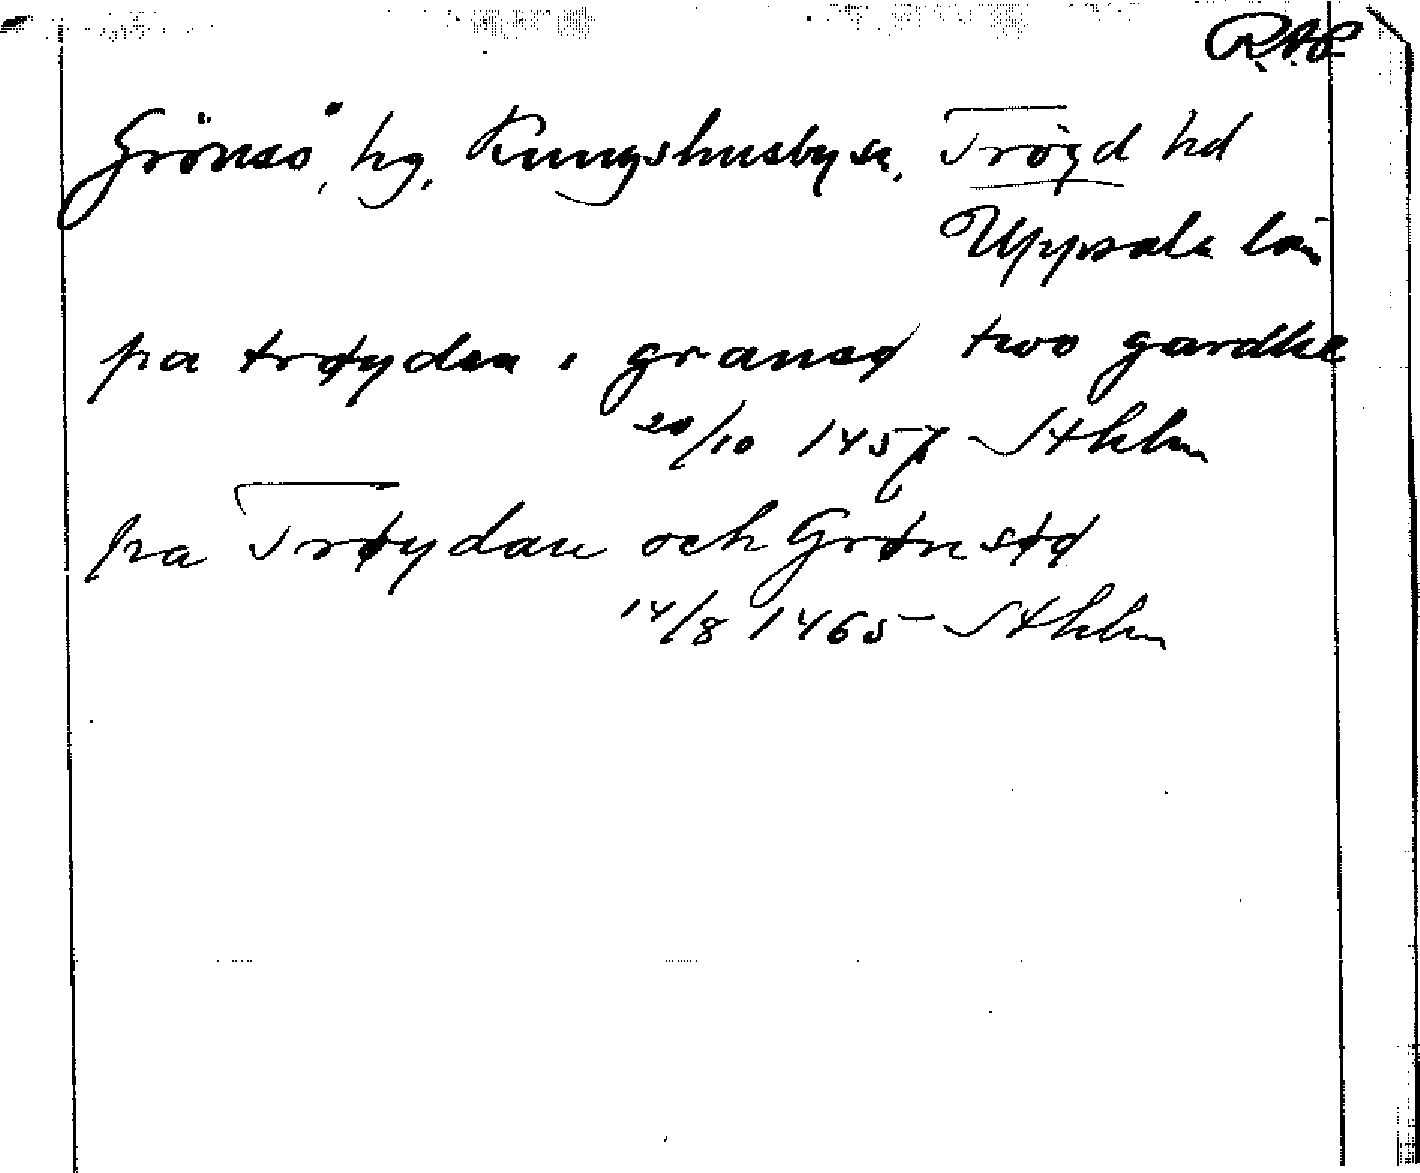 R.A.P.
Grönsö, hg, Kungshusby sn, Tröyd hd
Uppsala län
pa trøyden i gransø two gardhe
20/10 1457 Sthlm
pa Trøydan och Grønsøø
14/8 1465 Sthlm